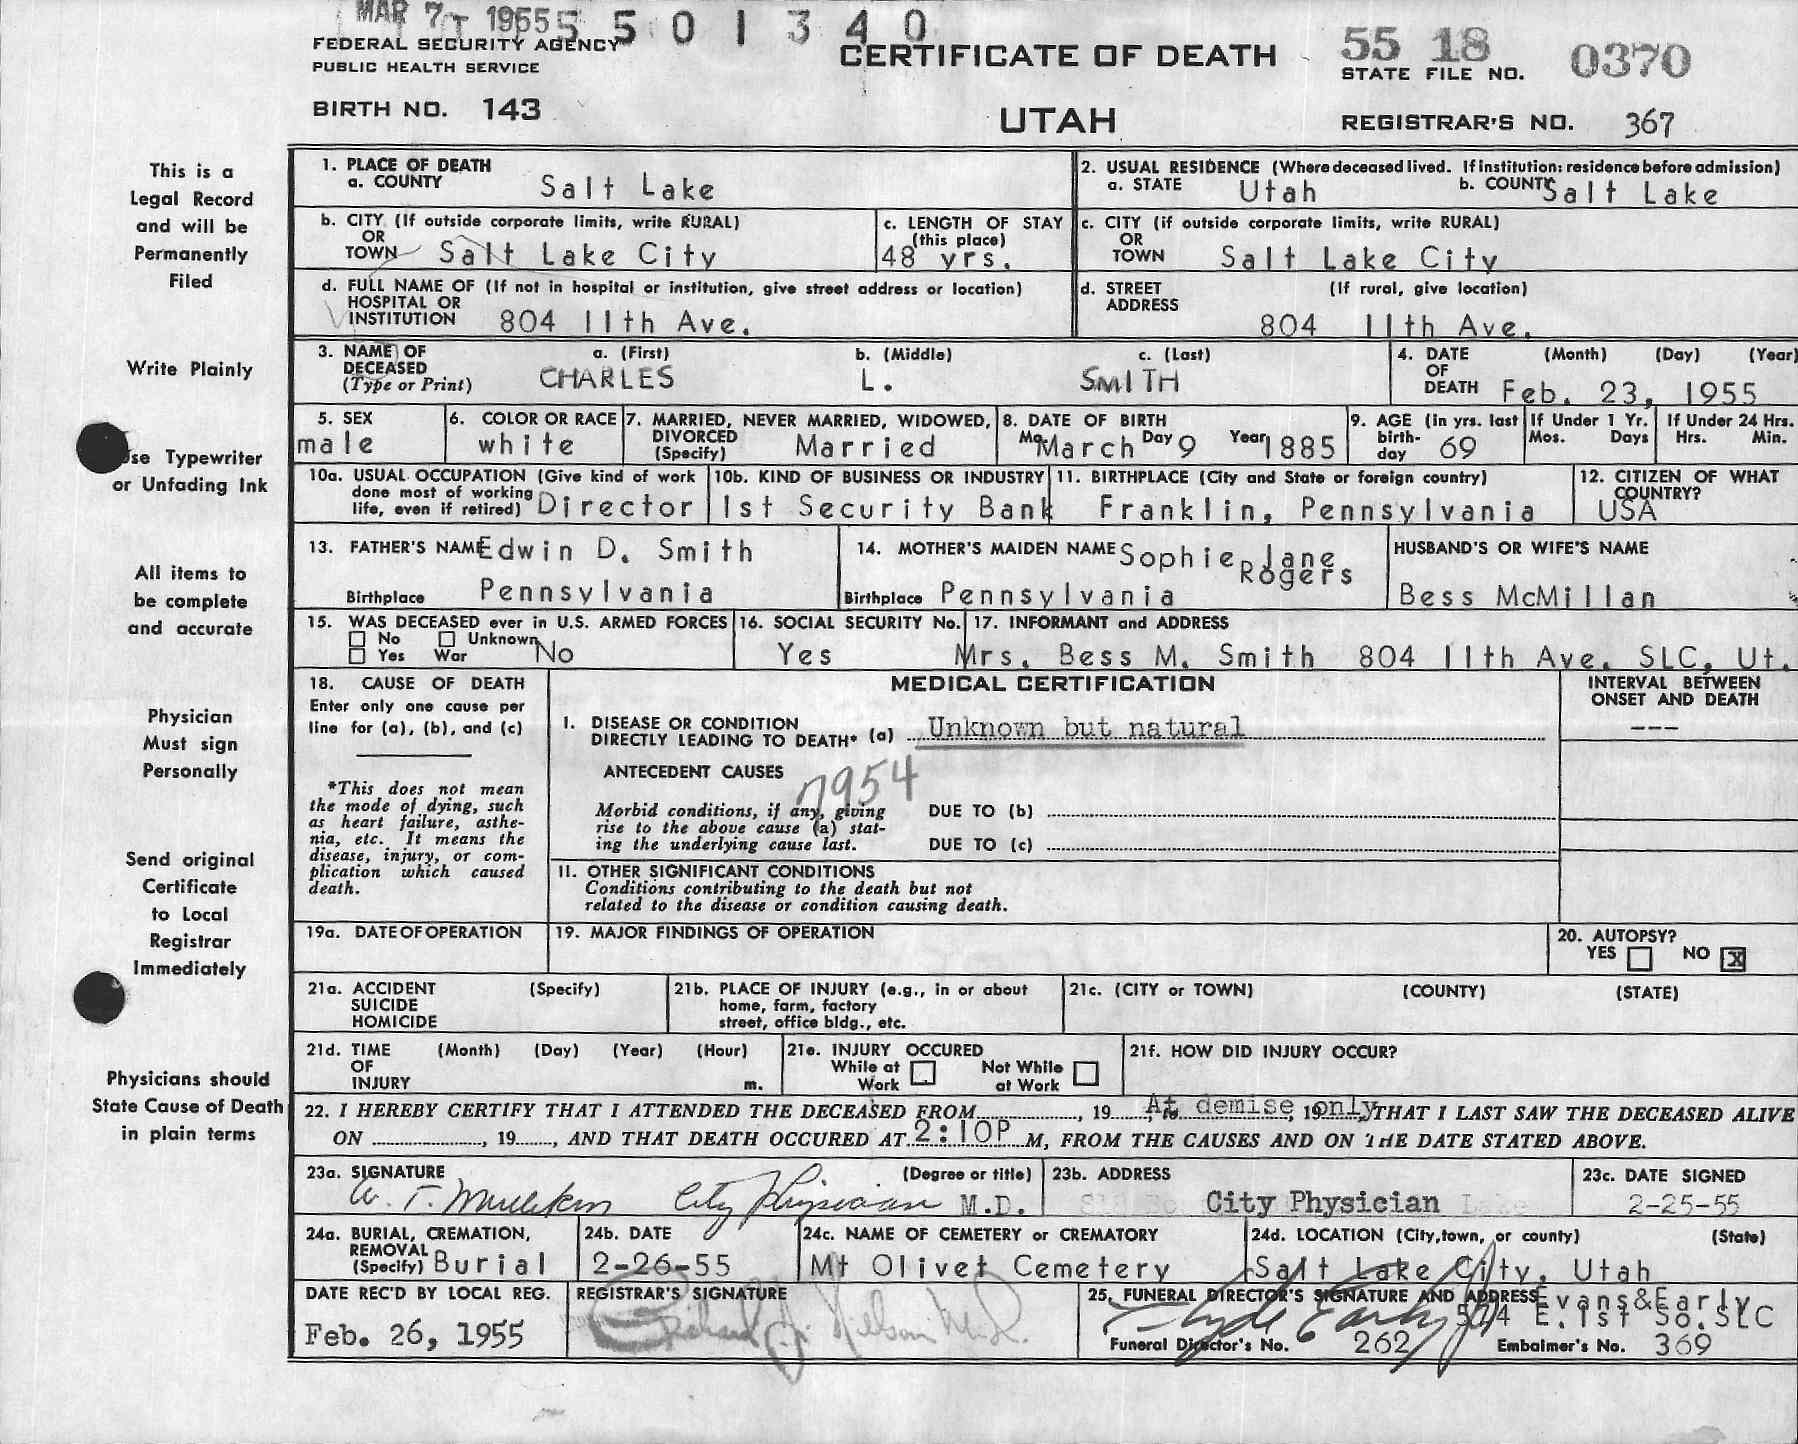 MAR 7 1955 5 5 0 1 3 4 0
FEDERAL SECURITY AGENCY
PUBLIC HEALTH SERVICE
CERTIFICATE OF DEATH
55 18 0370
STATE FILE NO.
BIRTH NO. 143
UTAH
REGISTRAR'S NO. 367
This is a
Legal Record
and will be
Permanently
Filed
Write Plainly
Use Typewriter
or Unfading Ink
All items to
be complete
and accurate
Physician
Must sign
Personally
Send original
Certificate
to Local
Registrar
Immediately
Physicians should
State Cause of Death
in plain terms
1. PLACE OF DEATH
a. COUNTY Salt Lake
2. USUAL RESIDENCE (Where deceased lived. If institution: residence before admission)
a. STATE Utah b. COUNTY Salt Lake
b. CITY (If outside corporate limits, write RURAL)
OR
TOWN Salt Lake City
c. LENGTH OF STAY
(this place)
48 yrs.
c. CITY (if outside corporate limits, write RURAL)
OR
TOWN Salt Lake City
d. FULL NAME OF (If not in hospital or institution, give street address or location)
HOSPITAL OR
INSTITUTION 804 11th Ave.
d. STREET (If rural, give location)
ADDRESS
804 11th Ave.
3. NAME OF a. (First) b. (Middle) c. (Last)
DECEASED
(Type or Print) CHARLES L. SMITH
4. DATE (Month) (Day) (Year)
OF
DEATH Feb. 23, 1955
5. SEX
male
6. COLOR OR RACE
white
7. MARRIED, NEVER MARRIED, WIDOWED,
DIVORCED
(Specify) Married
8. DATE OF BIRTH
Mo. March Day 9 Year 1885
9. AGE (in yrs. last
birth-
day 69
If Under 1 Yr.
Mos. Days
If Under 24 Hrs.
Hrs. Min.
10a. USUAL OCCUPATION (Give kind of work
done most of working
life, even if retired) Director
10b. KIND OF BUSINESS OR INDUSTRY
1st Security Bank
11. BIRTHPLACE (City and State or foreign country)
Franklin, Pennsylvania
12. CITIZEN OF WHAT
COUNTRY?
USA
13. FATHER'S NAME Edwin D. Smith
Birthplace Pennsylvania
14. MOTHER'S MAIDEN NAME Sophie Jane
Rogers
Birthplace Pennsylvania
HUSBAND'S OR WIFE'S NAME
Bess McMillan
15. WAS DECEASED ever in U.S. ARMED FORCES
No Unknown
Yes War No
16. SOCIAL SECURITY No.
Yes
17. INFORMANT and ADDRESS
Mrs. Bess M. Smith 804 11th Ave. SLC, Ut.
18. CAUSE OF DEATH
Enter only one cause per
line for (a), (b), and (c)
*This does not mean
the mode of dying, such
as heart failure, asthe-
nia, etc. It means the
disease, injury, or com-
plication which caused
death.
MEDICAL CERTIFICATION
INTERVAL BETWEEN
ONSET AND DEATH
---
I. DISEASE OR CONDITION
DIRECTLY LEADING TO DEATH* (a) Unknown but natural
ANTECEDENT CAUSES
7954
Morbid conditions, if any, giving
rise to the above cause (a) stat-
ing the underlying cause last.
DUE TO (b)
DUE TO (c)
II. OTHER SIGNIFICANT CONDITIONS
Conditions contributing to the death but not
related to the disease or condition causing death.
19a. DATE OF OPERATION
19. MAJOR FINDINGS OF OPERATION
20. AUTOPSY?
YES NO X
21a. ACCIDENT (Specify)
SUICIDE
HOMICIDE
21b. PLACE OF INJURY (e.g., in or about
home, farm, factory
street, office bldg., etc.
21c. (CITY or TOWN) (COUNTY) (STATE)
21d. TIME (Month) (Day) (Year) (Hour)
OF
INJURY m.
21e. INJURY OCCURED
While at Not While
Work at Work
21f. HOW DID INJURY OCCUR?
22. I HEREBY CERTIFY THAT I ATTENDED THE DECEASED FROM , 19 At demise only , 19 , THAT I LAST SAW THE DECEASED ALIVE
ON , 19 , AND THAT DEATH OCCURED AT 2:10P M, FROM THE CAUSES AND ON THE DATE STATED ABOVE.
23a. SIGNATURE (Degree or title)
City Physician M.D.
23b. ADDRESS
City Physician
23c. DATE SIGNED
2-25-55
24a. BURIAL, CREMATION,
REMOVAL
(Specify) Burial
24b. DATE
2-26-55
24c. NAME OF CEMETERY or CREMATORY
Mt Olivet Cemetery
24d. LOCATION (City, town, or county) (State)
Salt Lake City, Utah
DATE REC'D BY LOCAL REG.
Feb. 26, 1955
REGISTRAR'S SIGNATURE
25. FUNERAL DIRECTOR'S SIGNATURE AND ADDRESS Evans&Early
Clyde Early 574 E. 1st So. SLC
Funeral Director's No. 262 Embalmer's No. 369